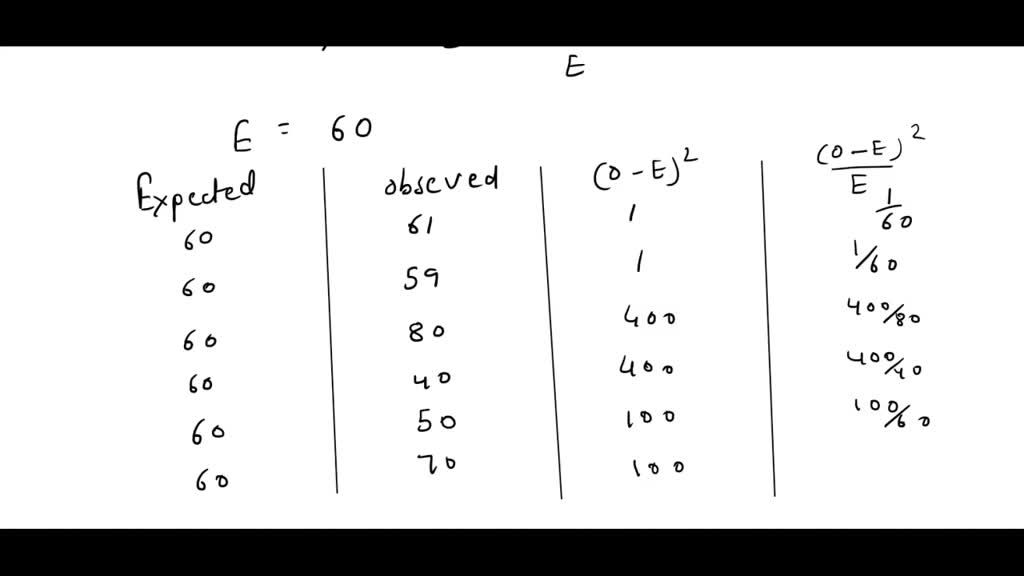 E
E = 60
Expected observed (0-E)² (0-E)²/E
60 61 1 1/60
60 59 1 1/60
60 80 400 400/80
60 40 400 400/40
60 50 100 100/60
60 70 100